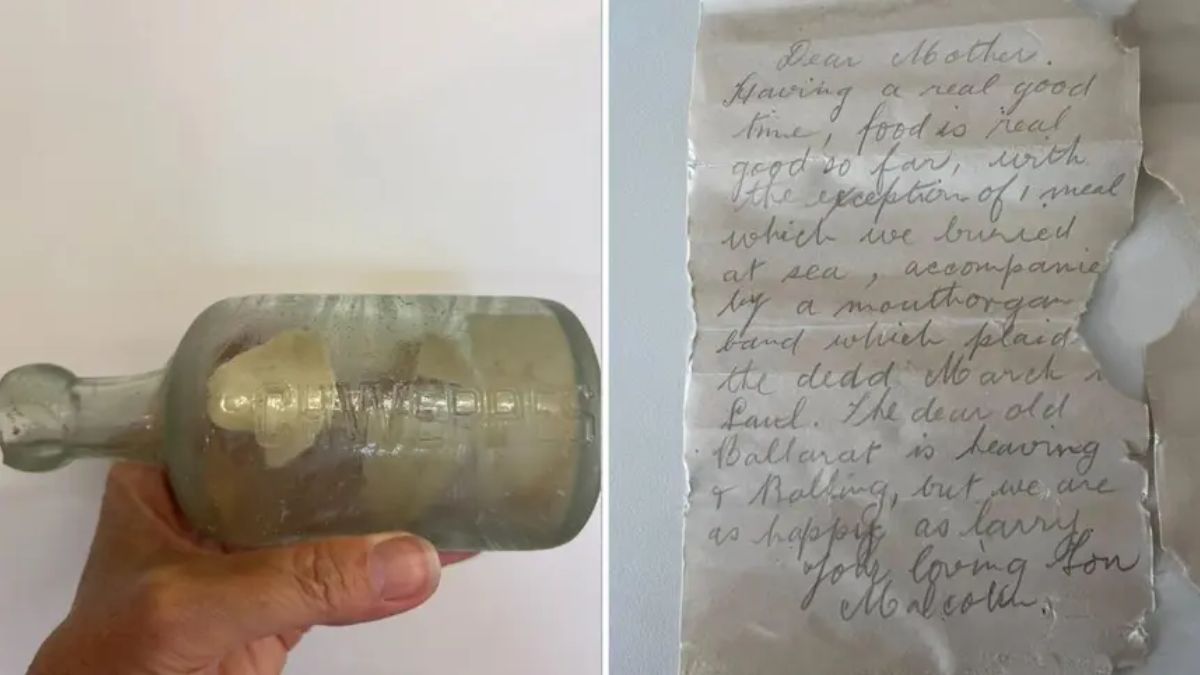 Dear Mother.
Having a real good
time, food is real
good so far, with
the exception of 1 meal
which we buried
at sea, accompanie
by a mouthorgan
band which plaid
the dedd March
Saul. The dear old
Ballarat is heaving
& Bolling, but we are
as happy as larry.
Your loving Son
Malcolm.